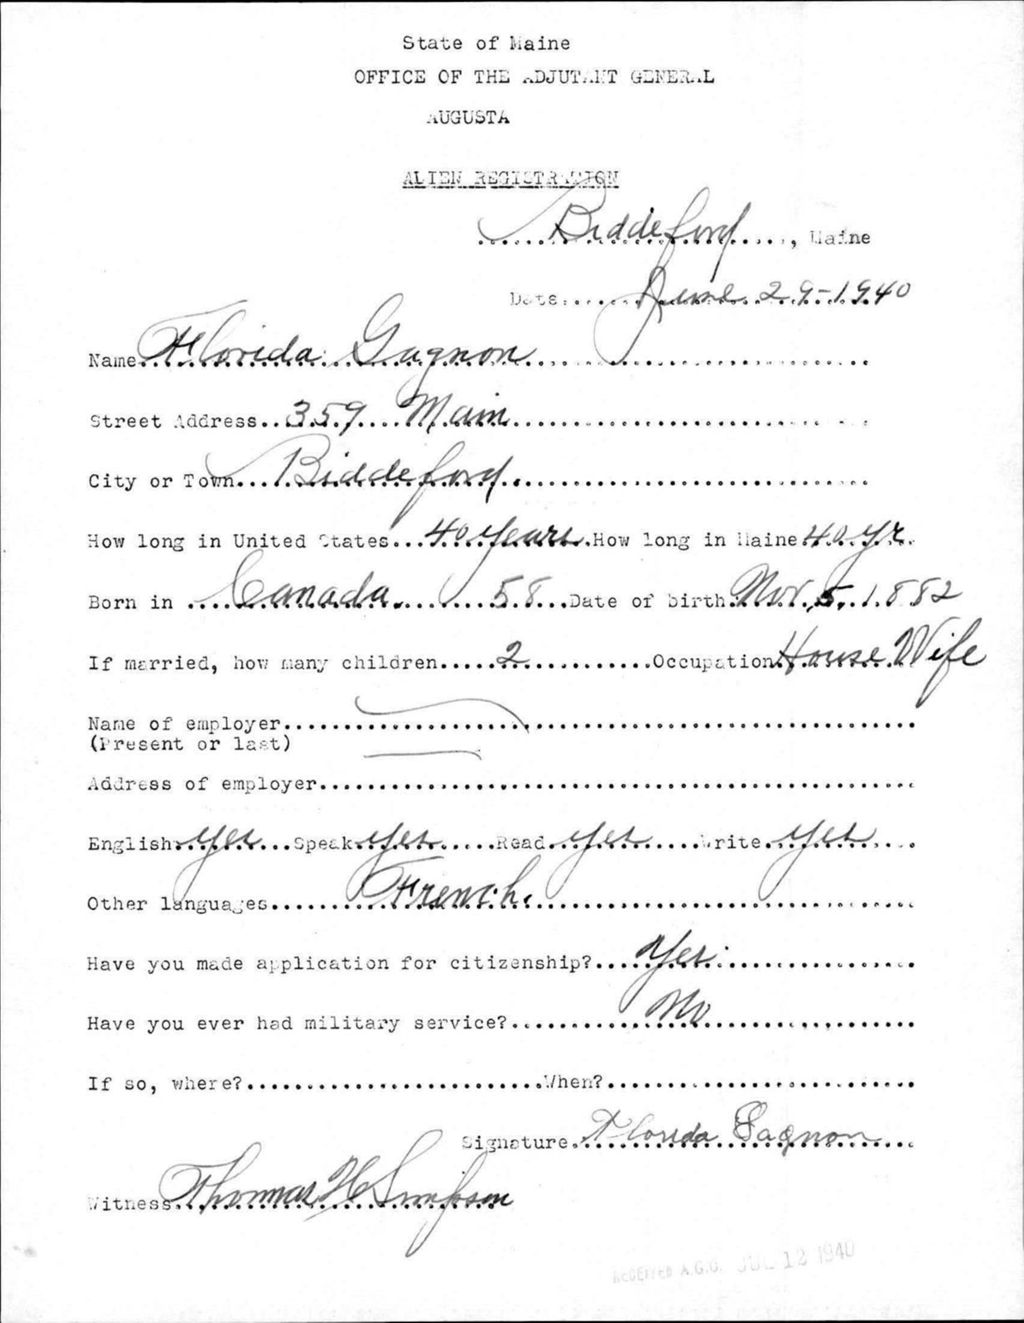 State of Maine
OFFICE OF THE ADJUTANT GENERAL
AUGUSTA
ALIEN REGISTRATION
Biddeford, Maine
Date: June 29-1940
Name Florida Gagnon
Street Address 359 Main
City or Town Biddeford
How long in United States 40 years How long in Maine 40 yr.
Born in Canada 58 Date of birth Nov 5, 1882
If married, how many children 2 Occupation House Wife
Name of employer
(Present or last)
Address of employer
English yes Speak yes Read yes Write yes
Other languages French
Have you made application for citizenship? Yes
Have you ever had military service? No
If so, where? When?
Signature Florida Gagnon
Witness Thomas H Simpson
RECEIVED A.G.O. JUL 12 1940